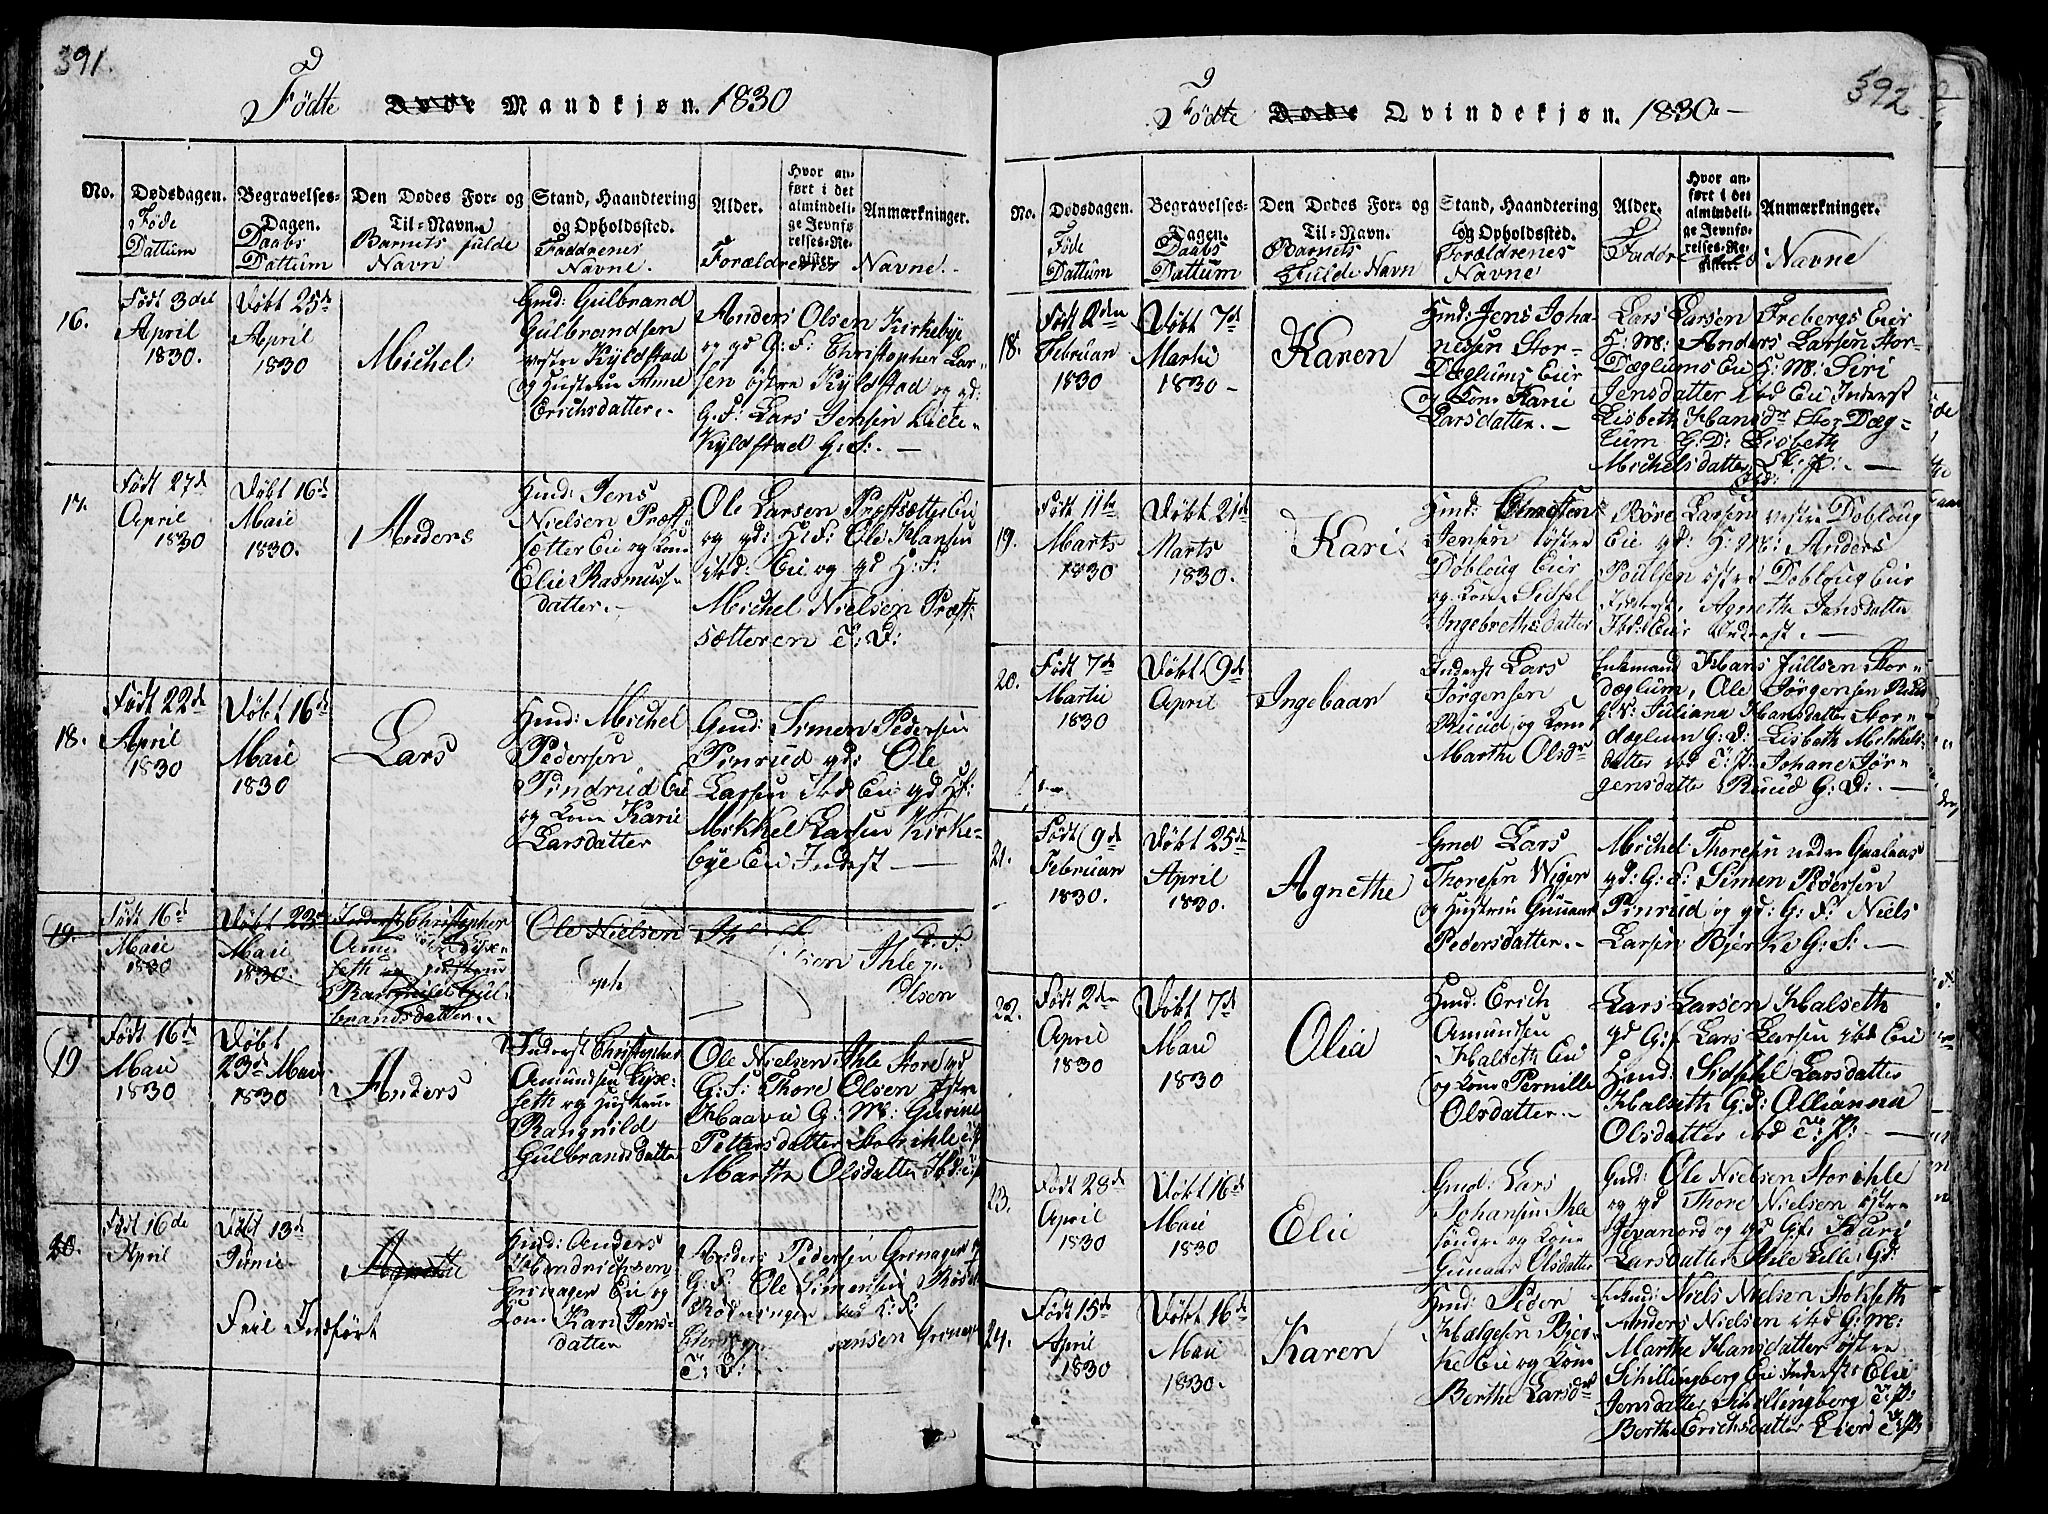 391.
Fødte Døde Mandkjøn. 1830
No.
Dødsdagen.
Føde
Dattum
Begravelses-
Dagen.
Daabs
Dattum
Den Dødes For- og
Til-Navn.
Barnets fulde
Navn
Stand, Haandtering
og Opholdssted.
Faddrenes
Navne.
Alder.
Forældrenes
Hvor an-
ført i det
almindeli-
ge Jevnfø-
relses-Re-
gister.
Anmærkninger.
Navne.
16.
Født 3del
April
1830.
Døbt 25de
April
1830
Michel
Gmd: Gulbrand
Gulbrandsen
vestre Kyldstad
og Hustrue Anne
Erichsdatter.
Anders Olsen Kirkebye
og gd G: F: Christopher Lar-
sen østre Kyldstad og gd:
G: F: Lars Jensen Lille-
Kyldstad G: F:
17.
Født 27de
April
1830
Døbt 16de
Maie
1830.
Anders
Hmd: Jens
Nielsen Præst-
sætter Eie og Kone
Elie Rasmus-
datter.
Ole Larsen Præstsætter Eie
og gd: H: F: Ole Hansen
ibd: Eie og gd H: F:
Michel Nielsen Præst-
sætteren T: D:
18.
Født 22de
April
1830
Døbt 16de
Maie
1830
Lars
Hmd: Michel
Pedersen
Pindrud Eie
og Kone Karie
Larsdatter
Gmd: Simen Pedersen
Pinrud gd: Ole
Larsen Ibd Eie gd H:
Mikkel Larsen Kirke-
bye Eie Inderst
19.
Født 16de
Maie
1830
Døbt 23de
Maie
1830.
Inderst Christopher
Ramhild Gul-
brandsdatter.
Ole Nielsen
Olsen
19
Født 16de
Maie
1830
Døbt
23de Maie
1830
Anders
Inderst Christopher
Amundsen Lyse-
seth og Hustrue
Rangnild
Gulbrandsdatter
Ole Nielsen Ihle Store gd
G: F: Thore Olsen Østre
Haave G: M: Gurine
Pettersdatter Storihle T: P
Marthe Olsdatter Ibd:
20.
Født 16de
April
Døbt 13de
Junie
Feil Indført
Agnethe
Hmd: Anders
Hendrichsen
Grinager Eie og
Kone Kari Jens-
datter
Anders Pedersen Grinager
G: F. Ole Simensen
T: D:
392.
Fødte Døde Qvindekjøn. 1830.
No.
Dødsdagen.
Føde
Dattum
Begravelses-
Dagen.
Daabs
Dattum
Den Dødes For- og
Til-Navn.
Barnets
Fulde Navn
Stand, Haandtering
og Opholdssted.
Forældrenes
Navne
Alder.
Faddrenes
Hvor an-
ført i det
almindeli-
ge Jevnfø-
relses-Re-
gister.
Anmærkninger.
Navne
18.
Født 2den
Februar
1830
Døbt 7de
Martie
1830
Karen
Hmd: Jens Joha-
nessen Stor-
Dæglums Eier
og Kone Karie
Larsdatter.
Lars Larsen Frebergs Eier
H: M: Anders Larsen Stor-
Dæglums Eie H: M: Siri
Jensdatter ibd Eie Inderst
Lisbeth Hansdr Stor Dæg-
lum G: D: Lisbeth
Michelsdatter
19.
Født 11te
Marts
1830
Døbt 21de
Marts
1830.
Kari
Jensen østre
Dobloug Eier
og Kone Sidsel
Ingebrethsdatter
Børe Larsen vestre Dobloug
Eie gd: H: M: Anders
Poulsen østre Dobloug Eier
Inderst. Agnethe Jensdatter
Ibd: Eier Inderst.
20.
Født 7de
Martie
1830
Døbt 9de
April
Ingebaar
Inderst Lars
Jørgensen
Ruud og Kone
Marthe Olsdr
Enkemand Hans Jullsen Stor-
dæglum, Ole Jørgensen Ruud
Juliana Hansdatter Stor-
dæglum G: D: Lisbeth Mikkels-
datter ibd T: P: Johane Jør-
gensdatter Ruud G: D:
21.
Født 9de
Februar
1830.
Døbt 25de
April
1830.
Agnethe
Gmd Lars
Thoresen Wiger
og Hustrue Gunaar
Pedersdatter.
Michel Thoresen nedre Gaalaas
gd: G: F: Simen Pedersen
Pinrud og gd: G: F: Niels
Larsen Bjerke G: F:
22.
Født 2den
April
1830
Døbt 7de
Maie
1830
Olia
Hmd: Erich
Amundsen
Halseth Eie
og Kone Pernille
Olsdatter.
Lars Larsen Halseth
gd G: f Lars Larsen ibd Eie
Hmd: Sidsel Larsdatter
Halseth G: D: Ollianna
Olsdatter ibd T: P:
23.
Født 28de
April
1830
Døbt 16de
Maie
1830
Elie
Gmd: Lars
Johansen Ihle
søndre og Kone
Gunaar Olsdatter
Gmd: Ole Nielsen Storihle
og gd Thore Nielsen østre
Jevanord og gd G: f: Kari
Larsdatter Ihle Lille: Gd:
24.
Født 15de
April
1830
Døbt 16de
Maie
1830.
Karen
Hmd: Peder
Helgesen Bjer-
ke Eie og Kone
Berthe Larsdr
Niels Nielsen Stokseth
Anders Nielsen ibd G: M:
Marthe Hansdatter østre
Schillingberg Eie Inderst: Elie
Jensdatter Schillingberg T: P:
Berthe Erichsdatter Eier T: P: